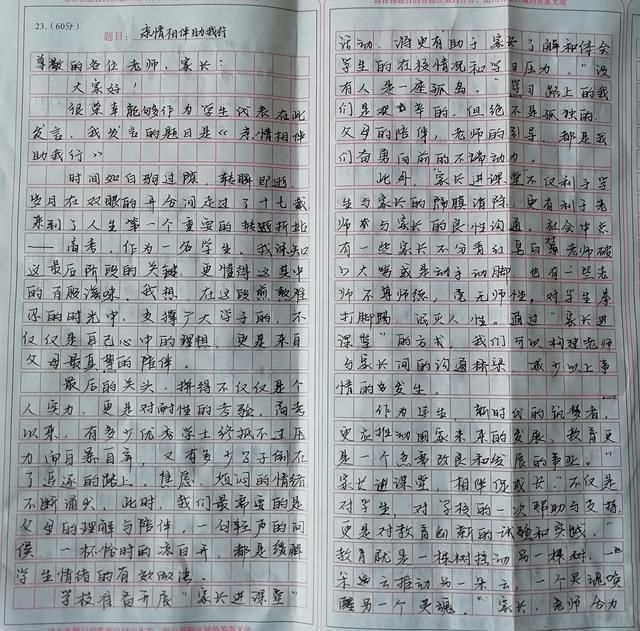 23.(60分)
题目: 亲情相伴助我行
尊敬的各位老师、家长:
大家好!
很荣幸能够作为学生代表在此
发言，我发言的题目是《亲情相伴
助我行》
时间如白驹过隙，转瞬即逝，
岁月在双眼的开合间走过了十七载
来到了人生第一个重要的转折
——高考，作为一名学生，我深知
这最后阶段的关键，更懂得这其中
的百般滋味。我想，在这段煎熬难
忍的时光中，支撑广大学子的，不
仅仅是自己心中的理想，更是来自
父母最真挚的陪伴。
最后的关头，拼得不仅仅是个
人实力，更是对耐性的考验。高考
以来，有多少优秀学士终抵不过压
力而自暴自弃，又有多少了子倒在
了追逐的路上，焦虑、烦闷的情绪
不断涌头，此时，我们最需要的是
父母的理解与陪伴，一句轻声的问
候，一杯恰时的凉白开，都是缓解
学生情绪的有效做法。
学校准备开展“家长进课堂”
活动，将更有助于家长了解和体会
学生的在校情况和学习压力。“没
有人是一座孤岛。”学习路上的我
们是艰辛的，但绝不是孤独的。
父母的陪伴，老师的引导，都是我
们奋勇向前的不竭动力。
此外，“家长进课堂不仅利于学
生与家长的隔膜消除，更有利于老
师与家长的良性沟通。社会中总
有一些家长不分青红皂白骂老师破
口大骂或是动手动脚，也有一些老
师不尊师德，毫无师性，对学生拳
打脚踢，泯灭人性。通过“家长进
课堂”的方式，我们可以构建老师
与家长间的沟通桥梁，减少以上事
情的发生。
作为学生，新时代的筑梦者，
更应推动国家未来的发展，教育更
是一个急需改良和发展的事业。“
家长进课堂，相伴促成长”不仅是
对学生，对学校的一次帮助与支持，
更是对教育创新的试验和实践。“
教育就是一棵树摇动另一棵树，一
朵云推动另一朵云，一个灵魂唤
醒另一个灵魂。”家长，老师合力